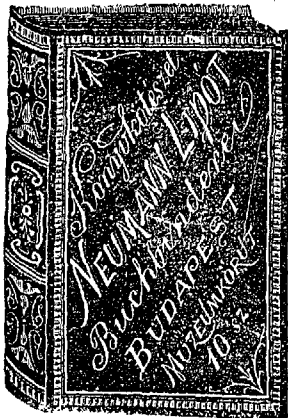 Könyvkötészet
NEUMANN LIPOT
Buchbinderei
BUDAPEST
MUZEUMKÖRÚT
10 sz